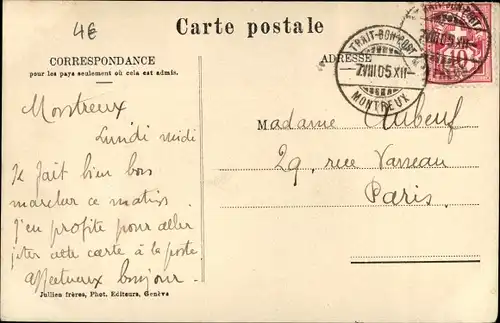 4€
Carte postale
CORRESPONDANCE
pour les pays seulement où cela est admis.
ADRESSE
TRAIT-BON-PORT
7.VIII.05.XII-
MONTREUX
10
Montreux
Lundi midi
Il fait bien bon
marcher ce matin
j'en profite pour aller
jeter cette carte à la poste
Affectueux bonjour.
Madame Aubeuf
29, rue Vanneau
Paris.
Jullien frères, Phot. Editeurs, Genève